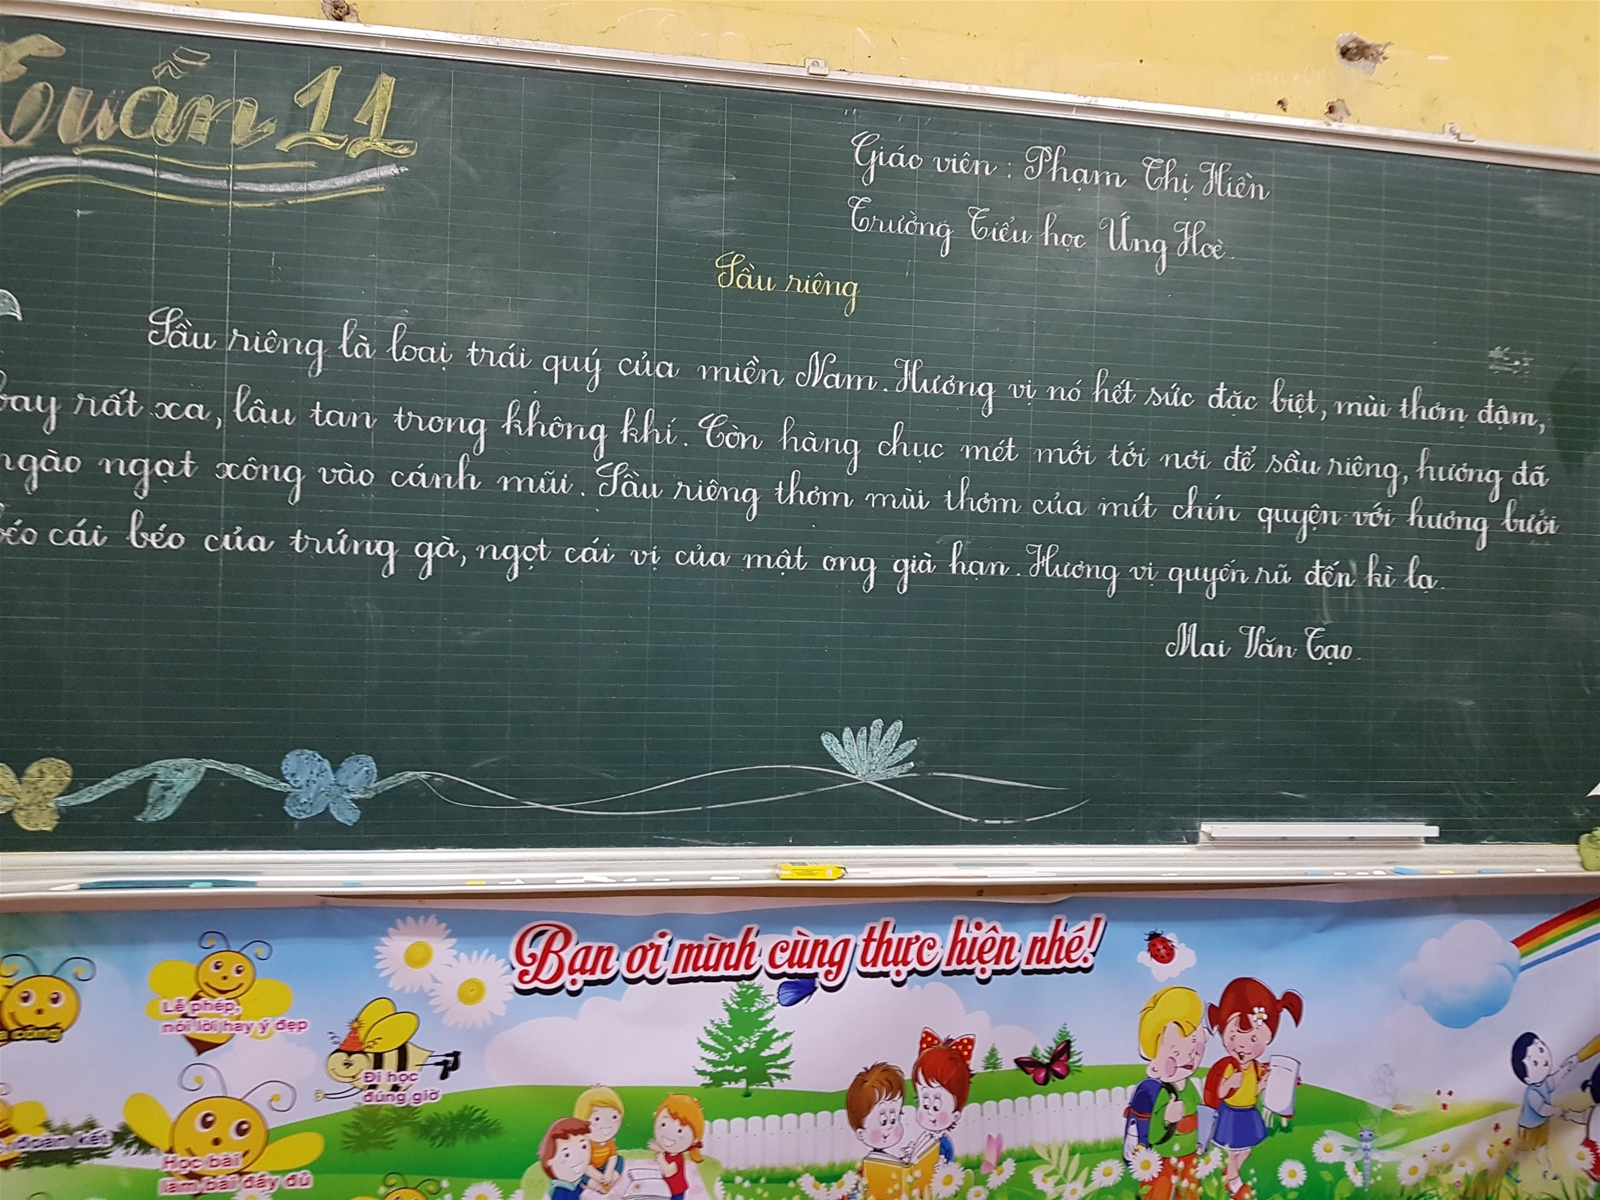 Tuần 11
Giáo viên : Phạm Thị Hiền
Trường Tiểu học Ứng Hoè.
Sầu riêng
Sầu riêng là loại trái quý của miền Nam. Hương vị nó hết sức đặc biệt, mùi thơm đậm,
bay rất xa, lâu tan trong không khí. Còn hàng chục mét mới tới nơi để sầu riêng, hương đã
ngào ngạt xông vào cánh mũi. Sầu riêng thơm mùi thơm của mít chín quyện với hương bưởi
béo cái béo của trứng gà, ngọt cái vị của mật ong già hạn. Hương vị quyến rũ đến kì lạ.
Mai Văn Tạo.
Bạn ơi mình cùng thực hiện nhé!
Lễ phép,
nói lời hay ý đẹp
Đi học
đúng giờ
đoàn kết
Học bài
làm bài đầy đủ